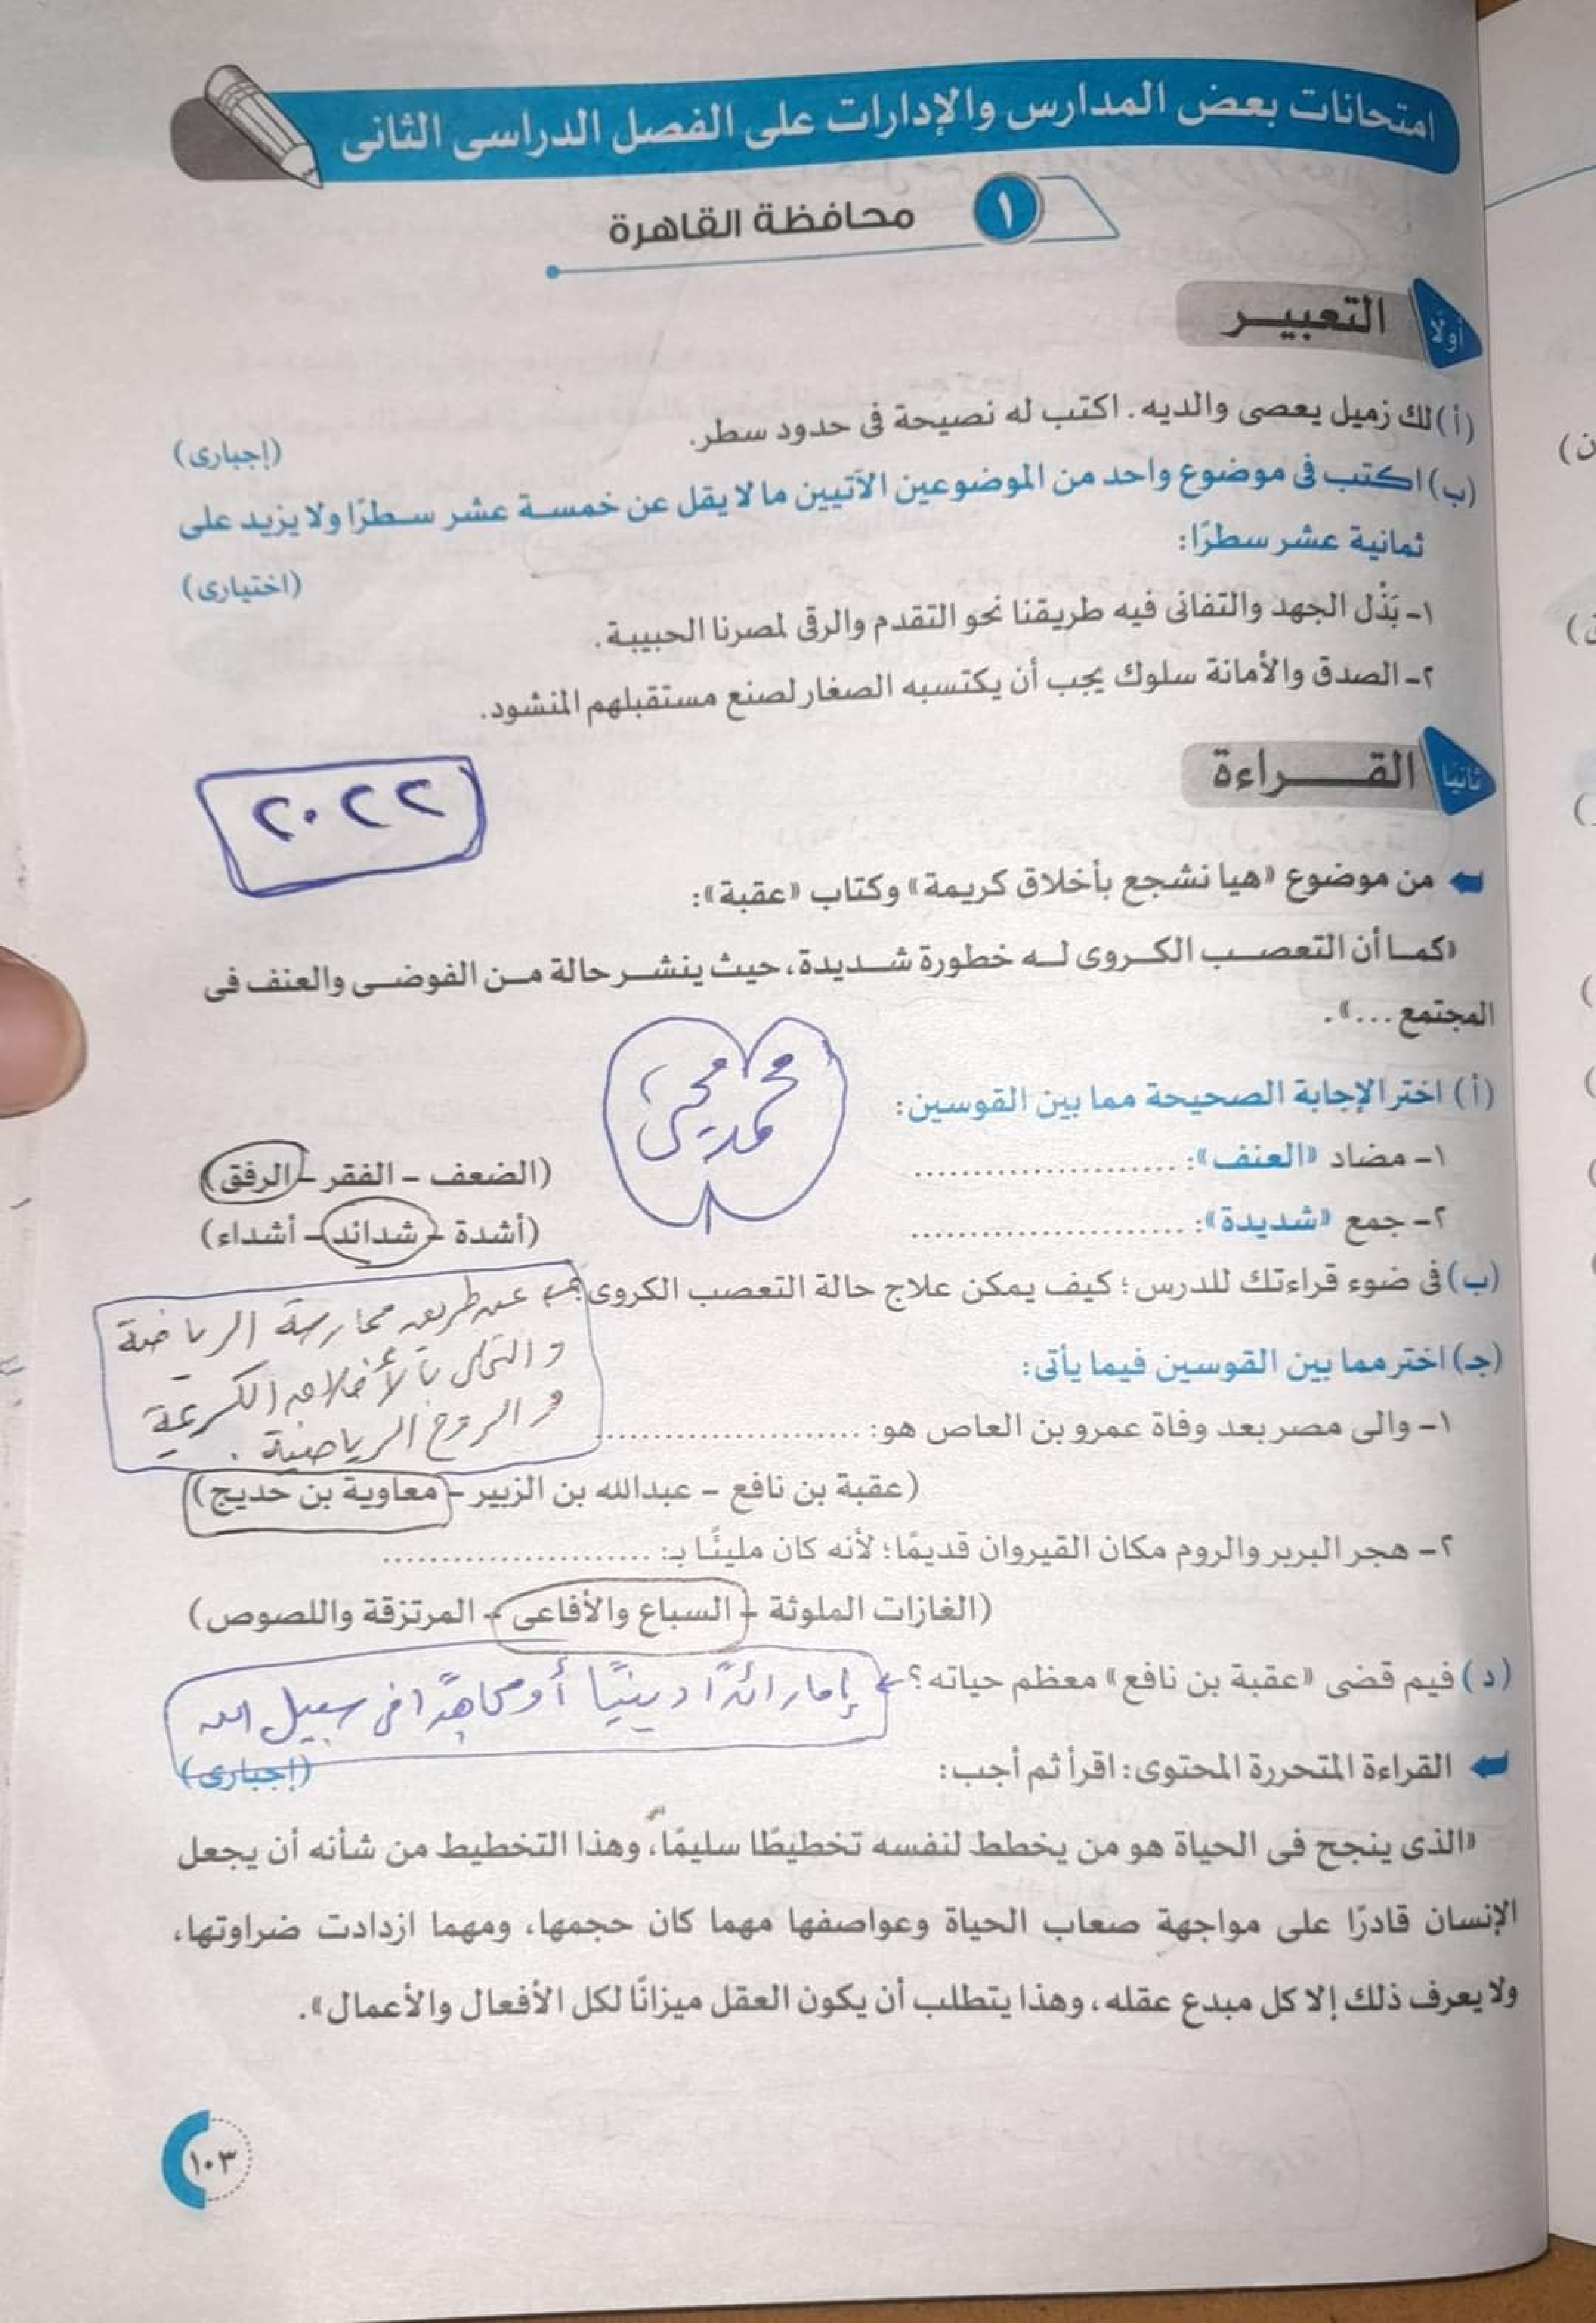 امتحانات بعض المدارس والإدارات على الفصل الدراسى الثانى
١ محافظة القاهرة
أولًا التعبيـــر
(أ) لك زميل يعصى والديه. اكتب له نصيحة فى حدود سطر.
(إجبارى)
(ب) اكتب فى موضوع واحد من الموضوعين الآتيين ما لا يقل عن خمسة عشر سطرًا ولا يزيد على
ثمانية عشر سطرًا:
(اختيارى)
١- بَذْل الجهد والتفانى فيه طريقنا نحو التقدم والرقى لمصرنا الحبيبة.
٢- الصدق والأمانة سلوك يجب أن يكتسبه الصغار لصنع مستقبلهم المنشود.
ثانيًا القـــراءة
٢٠٢٢
من موضوع «هيا نشجع بأخلاق كريمة» وكتاب «عقبة»:
«كما أن التعصب الكروى له خطورة شديدة، حيث ينشر حالة من الفوضى والعنف فى
المجتمع ...».
محمد يحيى
(أ) اختر الإجابة الصحيحة مما بين القوسين:
١- مضاد «العنف»: ......................
(الضعف - الفقر - الرفق)
٢- جمع «شديدة»: ......................
(أشدة - شدائد - أشداء)
(ب) فى ضوء قراءتك للدرس؛ كيف يمكن علاج حالة التعصب الكروى
عن طريق ممارسة الرياضة
والتحلى بالأخلاق الكريمة
والروح الرياضية .
(جـ) اختر مما بين القوسين فيما يأتى:
١- والى مصر بعد وفاة عمرو بن العاص هو: ......................
(عقبة بن نافع - عبدالله بن الزبير - معاوية بن حديج)
٢- هجر البربر والروم مكان القيروان قديمًا؛ لأنه كان مليئًا بـ: ......................
(الغازات الملوثة - السباع والأفاعى - المرتزقة واللصوص)
(د) فيم قضى «عقبة بن نافع» معظم حياته؟
إما رائدًا دينيًا أو مجاهدًا فى سبيل الله
القراءة المتحررة المحتوى: اقرأ ثم أجب:
(إجبارى)
«الذى ينجح فى الحياة هو من يخطط لنفسه تخطيطًا سليمًا، وهذا التخطيط من شأنه أن يجعل
الإنسان قادرًا على مواجهة صعاب الحياة وعواصفها مهما كان حجمها، ومهما ازدادت ضراوتها،
ولا يعرف ذلك إلا كل مبدع عقله، وهذا يتطلب أن يكون العقل ميزانًا لكل الأفعال والأعمال».
١٠٣